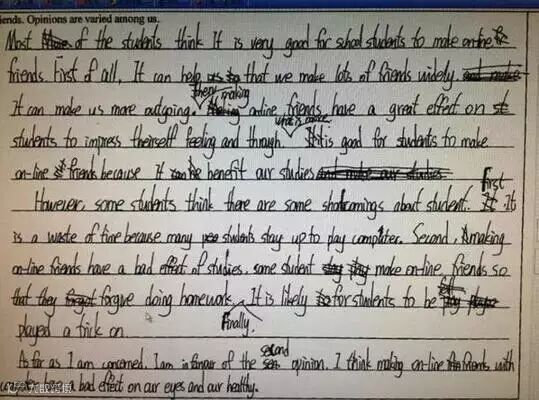 iends. Opinions are varied among us.
Most of the students think It is very good for school students to make on-line
friends. First of all, It can help us that we make lots of friends widely.
It can make us more outgoing. then, making on-line friends have a great effect on
students to impress theirself feeling and through. what's more It is good for students to make
on-line friends because It can benefit our studies
However, some students think there are some shortcomings about student. First It
is a waste of time because many students stay up to play computer. Second, making
on-line friends have a bad effect of studies, some student make on-line friends so
that they forgive doing homework. It is likely for students to be
played a trick on. Finally.
As far as I am concerned, I am in favour of the second opinion. I think making on-line friends with
a bad effect on our eyes and our healthy.